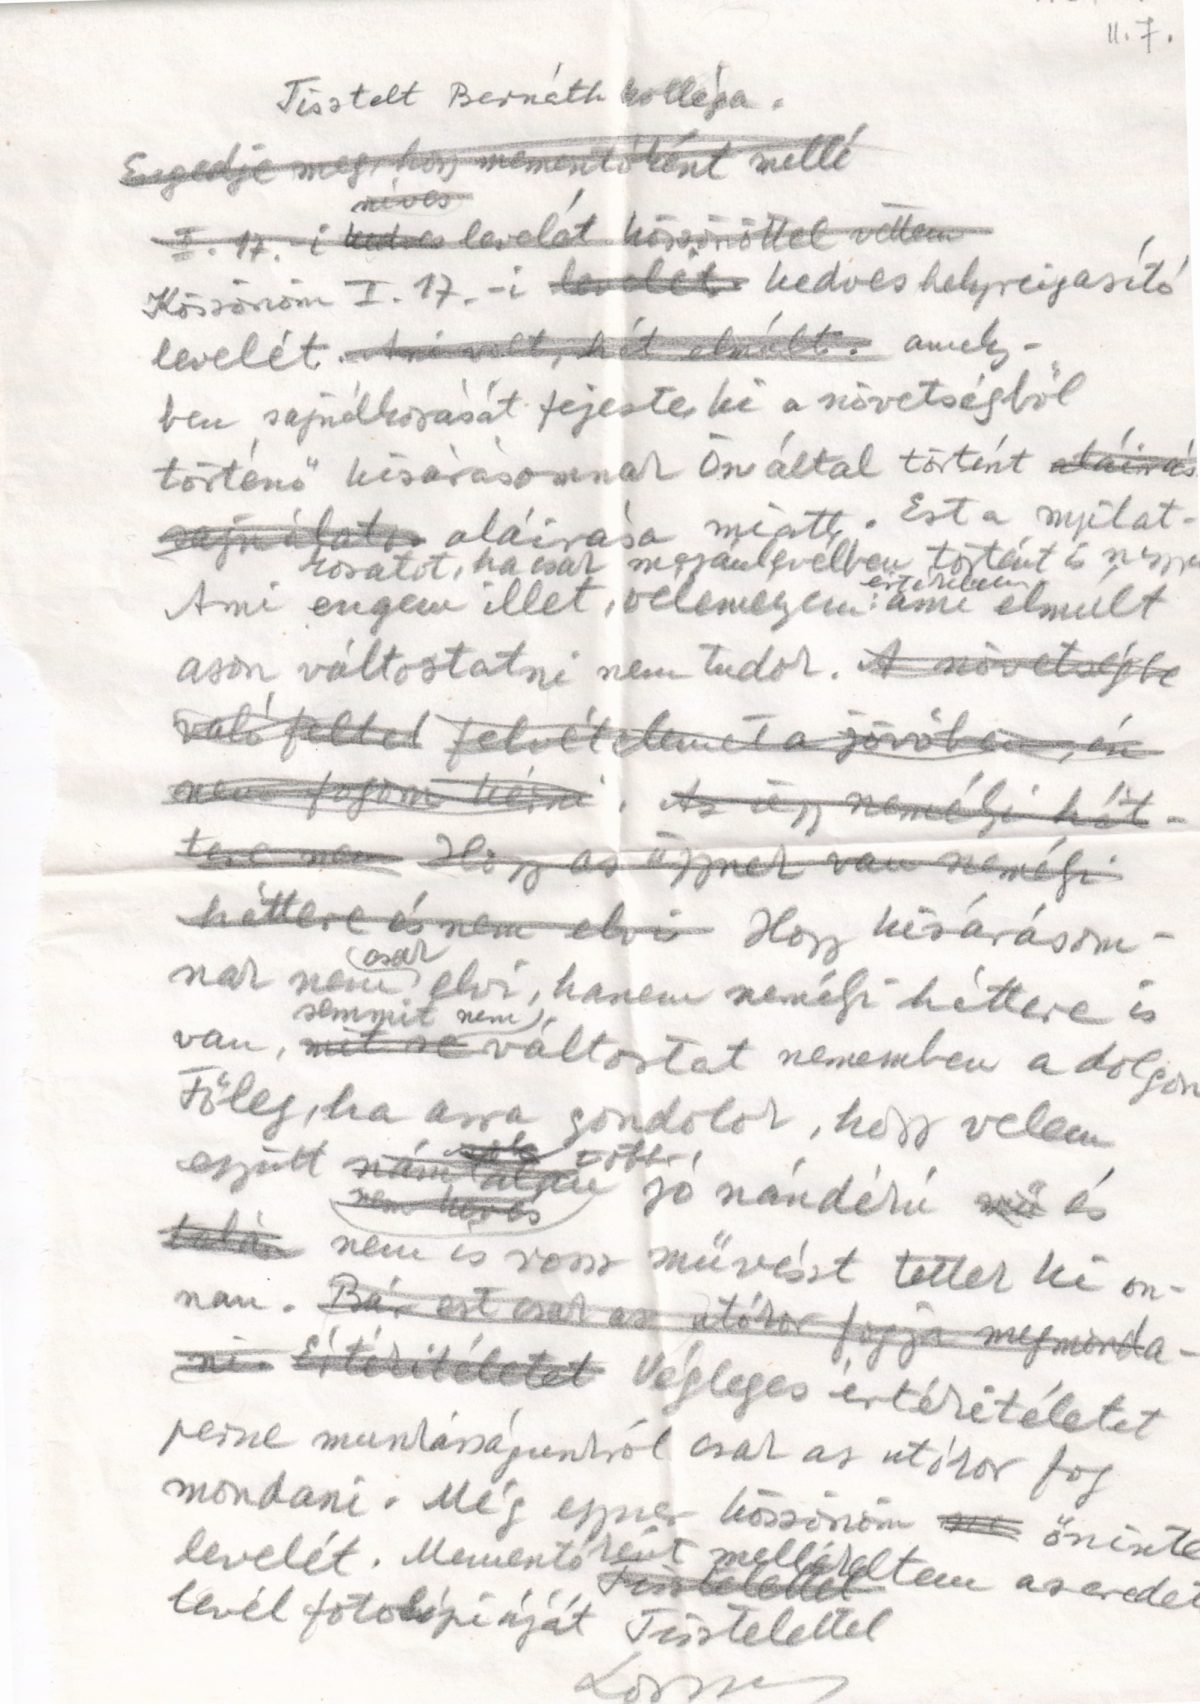 II. 7.
Tisztelt Bernáth kolléga.
Engedje meg, hogy mementóként mellé
nives
I. 17.-i kedves levelét köszönöttel vettem
Köszönöm I. 17.-i levelét. kedves helyreigazitó
levelét. Ami volt, hát elmúlt. amely-
ben sajnálkozását fejezte ki a szövetségből
történő kizárásomnak Ön által történt aláirás
sajnálatos aláirása miatt. Ezt a nyilat-
kozatot, ha csak magánlevélben történt is
értékelem
Ami engem illet, véleményem: ami elmúlt
azon változtatni nem tudok. A szövetségbe
való feltel felvételemet a jövőben, én
nem fogom kérni. Az ügy személyi hát-
tere nem Hogy az ügynek van személyi
háttere és nem elvi Hogy kizárásom-
csak
nak nem elvi, hanem személyi háttere is
semmit nem
van, mit se változtat szememben a dolgon
Főleg, ha arra gondolok, hogy velem
több
együtt számtalan jó szándékú mű és
nem kevés
talán nem is rossz művészt tettek ki on-
nan. Bár ezt csak az utókor fogja megmonda-
ni. Értékitéletet Végleges értékitéletet
persze munkásságunkról csak az utókor fog
mondani. Még egyszer köszönöm őszinte
levelét. Mementóként mellékeltem az eredeti
Tisztelettel
levél fotokópiáját Tisztelettel